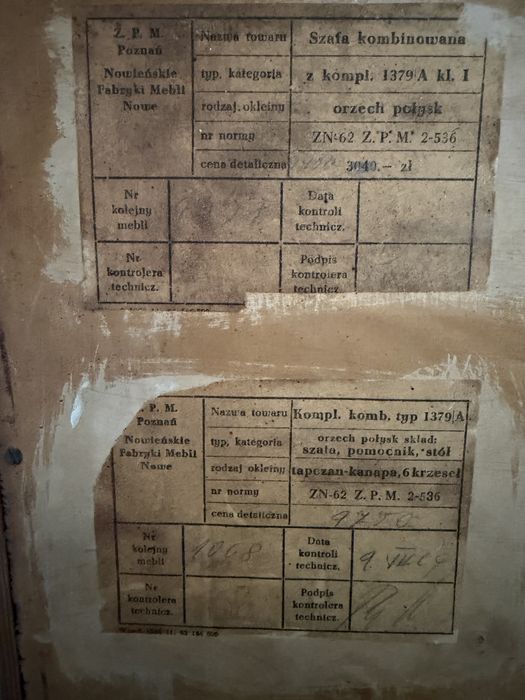 Z. P. M.
Poznań
Nowieńskie
Fabryki Mebli
Nowe
Nazwa towaru Szafa kombinowana
typ. kategoria z kompl. 1379 A kl. I
rodzaj. okleiny orzech połysk
nr normy ZN-62 Z. P. M. 2-536
cena detaliczna 3040.— zł
Nr
kolejny
mebli
Data
kontroli
technicz.
Nr
kontrolera
technicz.
Podpis
kontrolera
technicz.
. P. M.
Poznań
Nowieńskie
Fabryki Mebli
Nowe
Nazwa towaru Kompl. komb. typ 1379 A
typ, kategoria orzech połysk skład:
szafa, pomocnik, stół
rodzaj okleiny tapczan-kanapa, 6 krzeseł
nr normy ZN-62 Z. P. M. 2-536
cena detaliczna
Nr
kolejny
mebli
1068
Data
kontroli
technicz.
Nr
kontrolera
technicz.
Podpis
kontrolera
technicz.